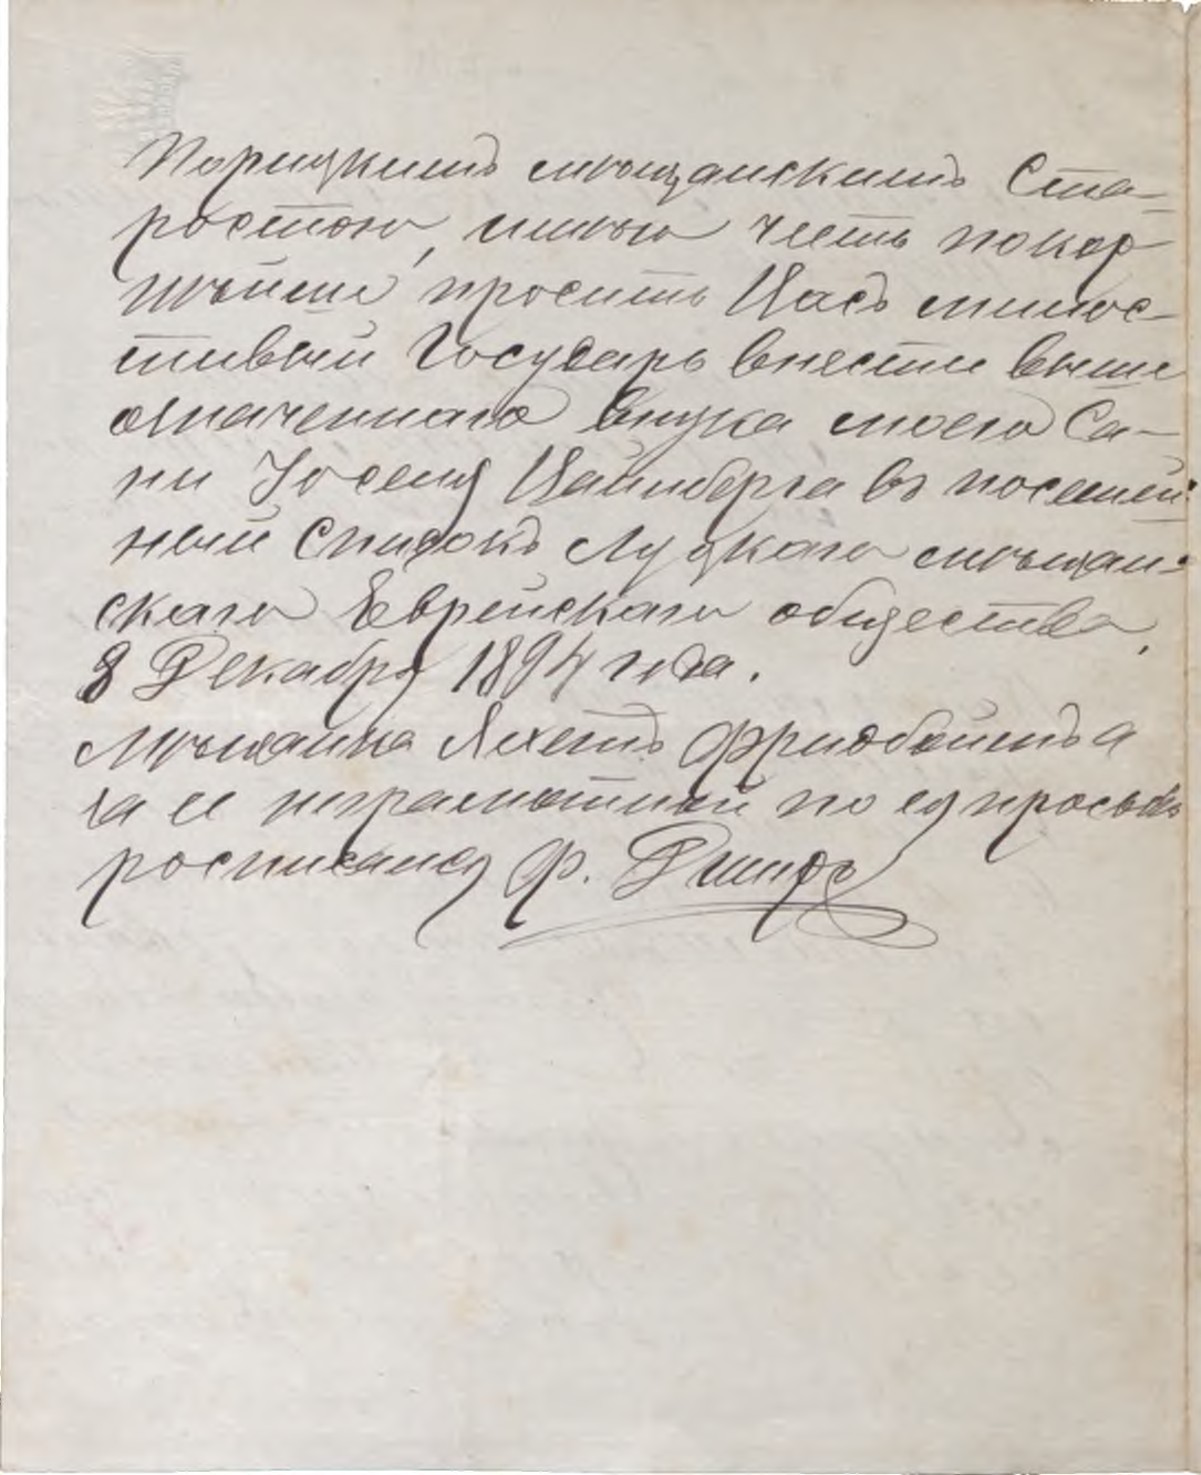 Порицкимъ мѣщанскимъ Ста-
ростою, имѣю честь покор
нѣйше просить Васъ милос-
тивый Государь внести выше
означеннаго внука моего Са-
ни Іоселя Вайнберга въ посемей-
ный списокъ Луцкаго мѣщан-
скаго Еврейскаго общества.
8 Декабря 1894 года.
Мѣщанка Яхетъ а
за ее неграмотной по ея просьбѣ
росписался Ф.